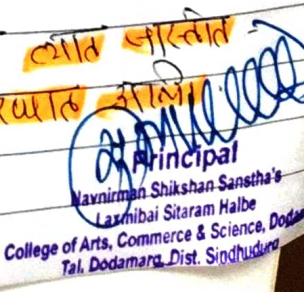 त्यात जास्तीत
ण्यात आले
Principal
Navnirman Shikshan Sanstha's
Laxmibai Sitaram Halbe
College of Arts, Commerce & Science, Doda
Tal. Dodamarg, Dist. Sindhudurg